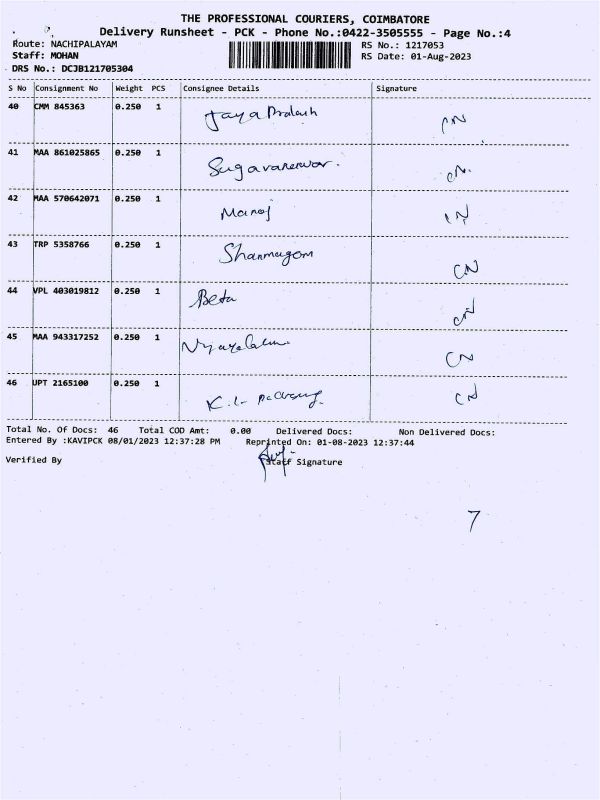 THE PROFESSIONAL COURIERS, COIMBATORE
Delivery Runsheet - PCK - Phone No.:0422-3505555 - Page No.:4
Route: NACHIPALAYAM RS No.: 1217053
Staff: MOHAN RS Date: 01-Aug-2023
DRS No.: DCJB121705304
S No Consignment No Weight PCS Consignee Details Signature
40 CMM 845363 0.250 1 Jaya Prakash CN
41 MAA 861025865 0.250 1 CN.
42 MAA 570642071 0.250 1 Manoj CN
43 TRP 5358766 0.250 1 Shanmugam CN
44 VPL 403019812 0.250 1 Beta CN
45 MAA 943317252 0.250 1 CN
46 UPT 2165100 0.250 1 CN
Total No. Of Docs: 46 Total COD Amt: 0.00 Delivered Docs: Non Delivered Docs:
Entered By :KAVIPCK 08/01/2023 12:37:28 PM Reprinted On: 01-08-2023 12:37:44
Verified By Staff Signature
7